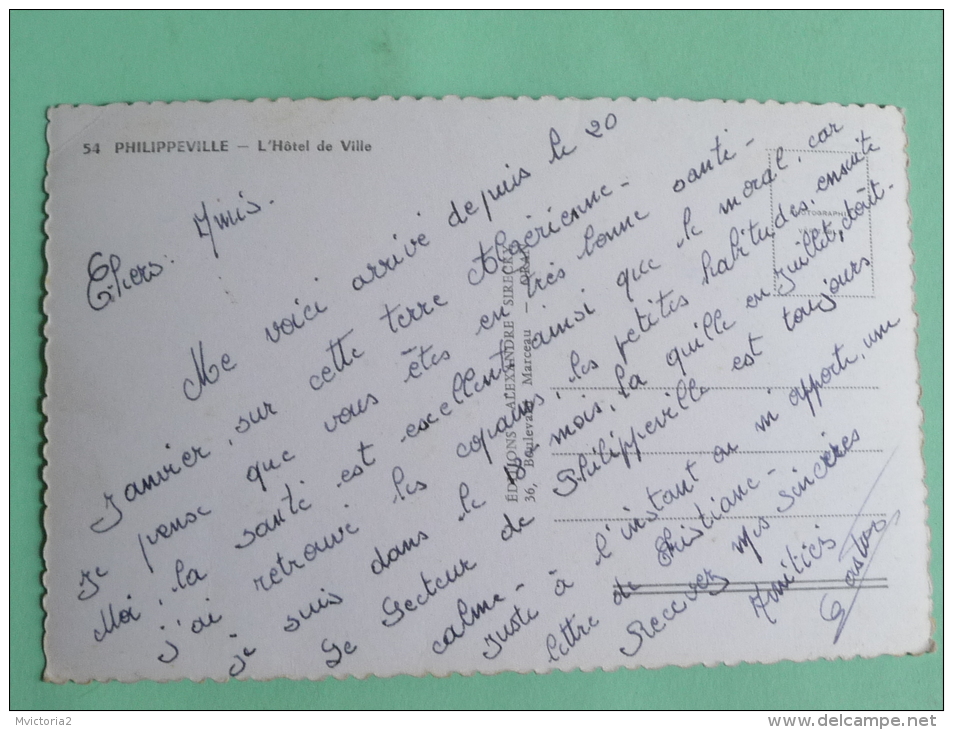 54 PHILIPPEVILLE — L'Hôtel de Ville
Chers Amis.
Me voici arrivé depuis le 20
Janvier, sur cette terre Algérienne-
Je pense que vous êtes en très bonne santé-
Moi, la santé est excellent ainsi que le moral, car
j'ai retrouvé les copains, les petites habitudes, ensuite
je suis dans le mois, la quille en juillet, août-
Le Secteur de Philippeville est toujours
calme-
Juste à l'instant on m'apporte, une
lettre de Christiane-
Recevez mes sincères
Amitiés
ÉDITIONS ALEXANDRE SIRECKY
36, Boulevard Marceau - ORAN
PHOTOGRAPHIE
Mvictoria2
www.delcampe.net